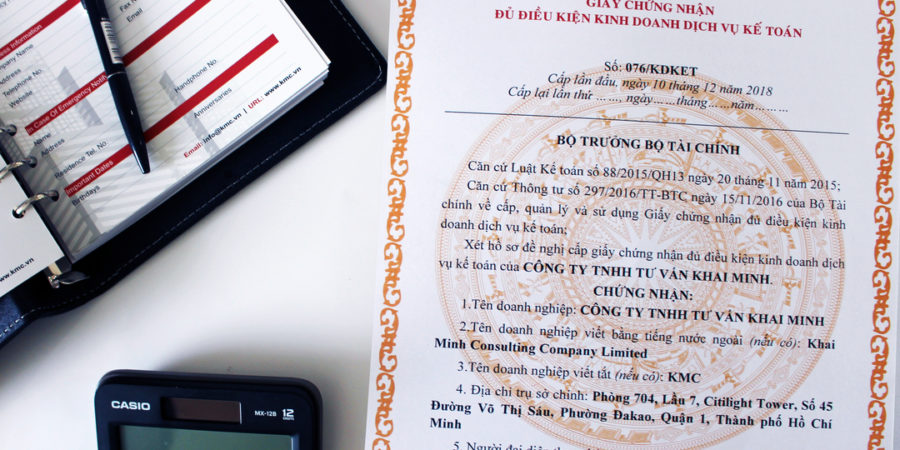 Fax No
Email
ess Information
Company Name
Address
Telephone
Website
In Case of Emergency Notify
Name
Address
Residence Tel. No.
Handphone No.
Important Dates
Birthdays
Anniversaries
Email: info@kmc.vn | URL: www.kmc.vn
www.kmc.vn
CASIO
MX-12B
12
GIẤY CHỨNG NHẬN
ĐỦ ĐIỀU KIỆN KINH DOANH DỊCH VỤ KẾ TOÁN
Số: 076/KDKET
Cấp lần đầu, ngày 10 tháng 12 năm 2018
Cấp lại lần thứ ……, ngày……tháng……năm………
BỘ TRƯỞNG BỘ TÀI CHÍNH
Căn cứ Luật Kế toán số 88/2015/QH13 ngày 20 tháng 11 năm 2015;
Căn cứ Thông tư số 297/2016/TT-BTC ngày 15/11/2016 của Bộ Tài
chính về cấp, quản lý và sử dụng Giấy chứng nhận đủ điều kiện kinh
doanh dịch vụ kế toán;
Xét hồ sơ đề nghị cấp giấy chứng nhận đủ điều kiện kinh doanh dịch
vụ kế toán của CÔNG TY TNHH TƯ VẤN KHAI MINH.
CHỨNG NHẬN:
1.Tên doanh nghiệp: CÔNG TY TNHH TƯ VẤN KHAI MINH
2.Tên doanh nghiệp viết bằng tiếng nước ngoài (nếu có): Khai
Minh Consulting Company Limited
3.Tên doanh nghiệp viết tắt (nếu có): KMC
4. Địa chỉ trụ sở chính: Phòng 704, Lầu 7, Citilight Tower, Số 45
Đường Võ Thị Sáu, Phường Đakao, Quận 1, Thành phố Hồ Chí
Minh
5. Người đại diện